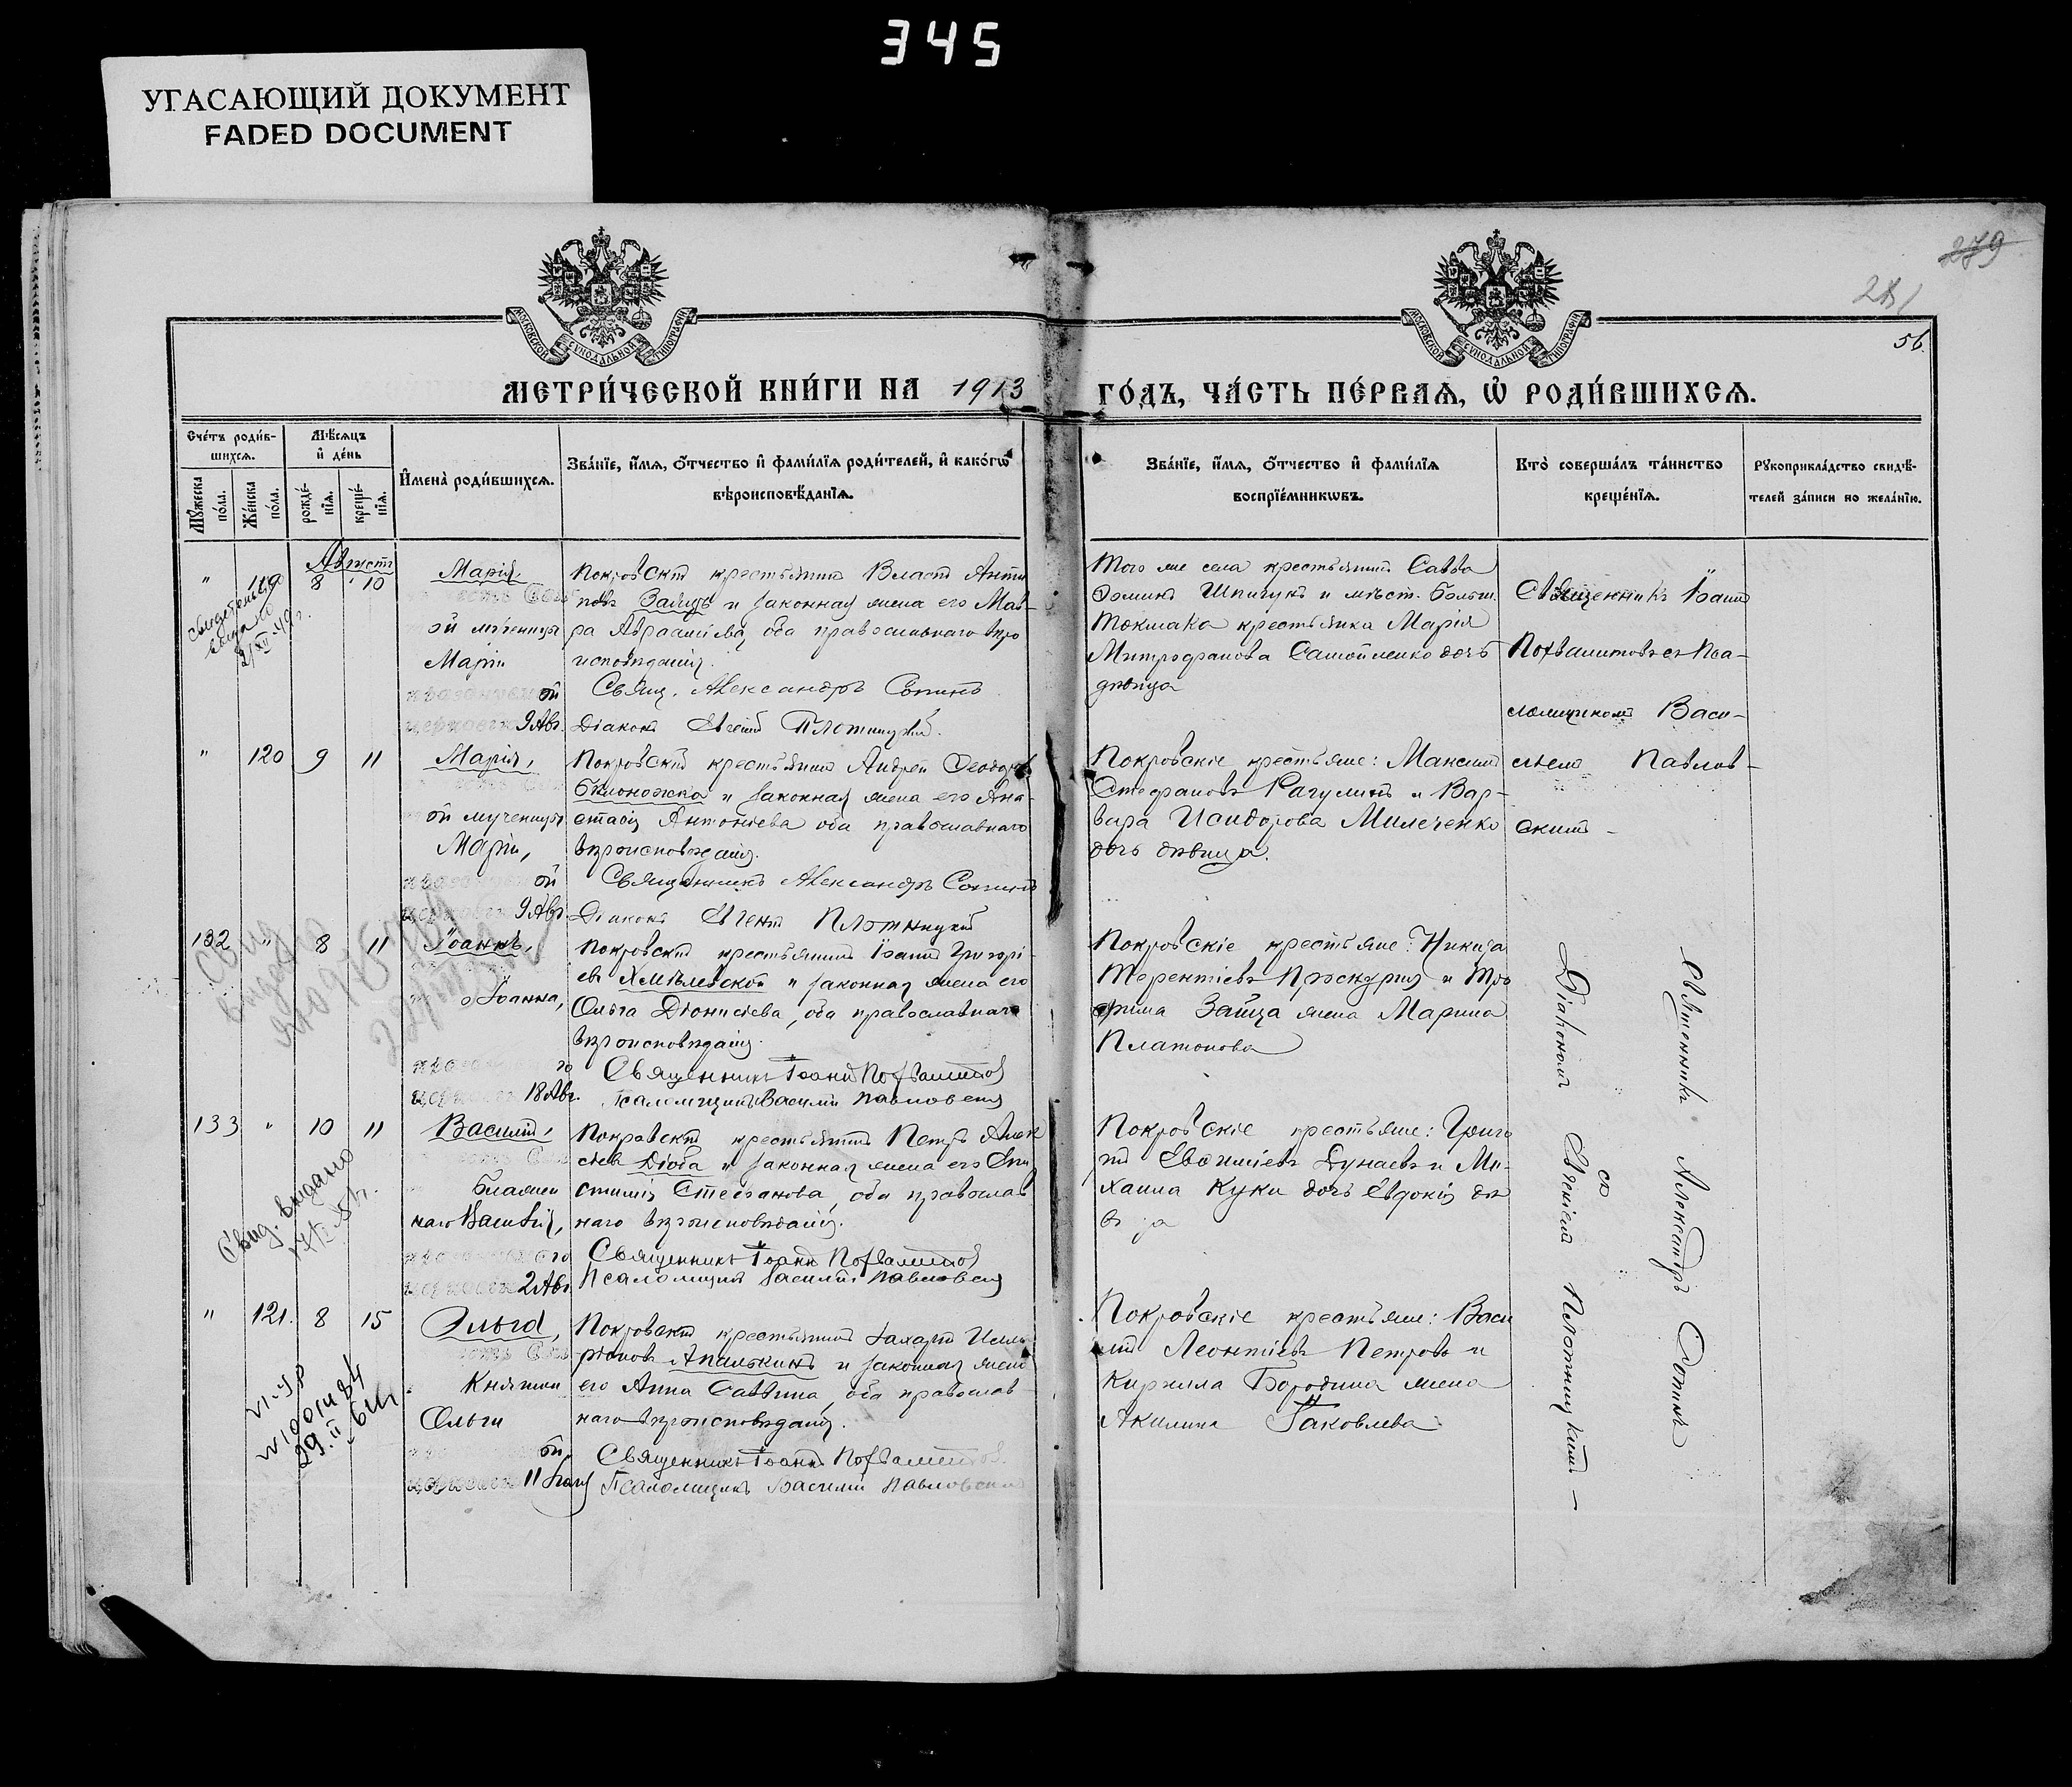 345
УГАСАЮЩИЙ ДОКУМЕНТ
FADED DOCUMENT
279
281
56
МОСКОВСКОЙ СѴНОДАЛЬНОЙ ТИПОГРАФІИ
МОСКОВСКОЙ СѴНОДАЛЬНОЙ ТИПОГРАФІИ
МЕТРИ́ЧЕСКОЙ КНИ́ГИ НА 1913 ГО́ДЪ, ЧА́СТЬ ПЕ́РВАѦ, Ѡ҆ РОДИ́ВШИХСѦ.
Сче́тъ роди́в-
шихсѧ.
Мꙋ́жеска
по́ла.
Же́нска
по́ла.
Мѣ́сѧцъ
и҆ де́нь
рожде́-
нїѧ.
креще́-
нїѧ.
И҆мена̀ роди́вшихсѧ.
Зва́нїе, и҆́мѧ, ѻ҆́тчество и҆ фами́лїѧ роди́телей, и҆ како́гѡ
вѣроисповѣ́данїѧ.
Зва́нїе, и҆́мѧ, ѻ҆́тчество и҆ фами́лїѧ
воспрїе́мникѡвъ.
Кто̀ соверша́лъ та́инство
креще́нїѧ.
Рꙋкоприкла́дство свидѣ́-
телей за́писи по жела́нїю.
Августъ
" 119 8 10 Марія,
ой мученицы
Маріи
ой
9 Авг.
Покровскій крестьянинъ Власій Анти
повъ Заяцъ и законная жена его Мав-
ра Авраамiева, оба православнаго вѣро
исповѣданія.
Свящ. Александръ Сопинъ
Діаконъ Евгеній Плотницкій.
Того же села крестьянинъ Савва
Ѳоминъ Шпичукъ и мѣст. Больш.
Токмака крестьянка Марія
Митрофанова Самойленко дочь
дѣвица
Священникъ Іоаннъ
Похвалитовъ съ Пса-
ломщикомъ Васи-
ліемъ Павлов-
скимъ -
" 120 9 11 Марія,
ой мученицы
Маріи,
ой
9 Авг.
Покровскій крестьянинъ Андрей Ѳеодоровъ
Бѣлоножка и законная жена его Ана-
стасія Антоніева оба православнаго
вѣроисповѣданія.
Священникъ Александръ Сопинъ
Діаконъ Евгеній Плотницкій
Покровскіе крестьяне: Максимъ
Стефановъ Рагулинъ и Вар-
вара Исидорова Милеченко
дочь дѣвица.
132 " 8 11 Іоаннъ,
Іоанна,
го
18 Авг.
Покровскій крестьянинъ Іоаннъ Григорі-
евъ Хмѣлевской и законная жена его
Ольга Діонисіева, оба православнаго
вѣроисповѣданія.
Священникъ Іоаннъ Похвалитовъ
Псаломщикъ Василій Павловскій
Покровскіе крестьяне: Никита
Терентіевъ Проскурня и Тро
фима Зайца жена Марина
Платонова
Діакономъ Евгеніемъ Плотницкимъ —
Священникъ Александръ Сопинъ
съ
133 " 10 11 Василій,
Блажен
наго Василія,
го
2 Авг.
Покровскій крестьянинъ Петръ Алек
сіевъ Дзюба и законная жена его Епи
стимія Стефанова, оба православ
наго вѣроисповѣданія.
Священникъ Іоаннъ Похвалитовъ
Псаломщикъ Василій Павловскій
Покровскіе крестьяне: Григо
рій Евѳиміевъ Дунаевъ и Ми-
хаила Куки дочь Евдокія дѣ
Свид. выдано
" 121. 8 15 Ольга,
Княгини
Ольги
ой
11 Іюля
Покровскій крестьянинъ Захарій Илла-
ріоновъ Апалькинъ и законная жена
его Анна Саввина, оба православ-
наго вѣроисповѣданія.
Священникъ Іоаннъ Похвалитовъ.
Псаломщикъ Василій Павловскій
Покровскіе крестьяне: Васи
лій Леонтіевъ Петровъ и
Кирилла Бородина жена
Акилина Іаковлева